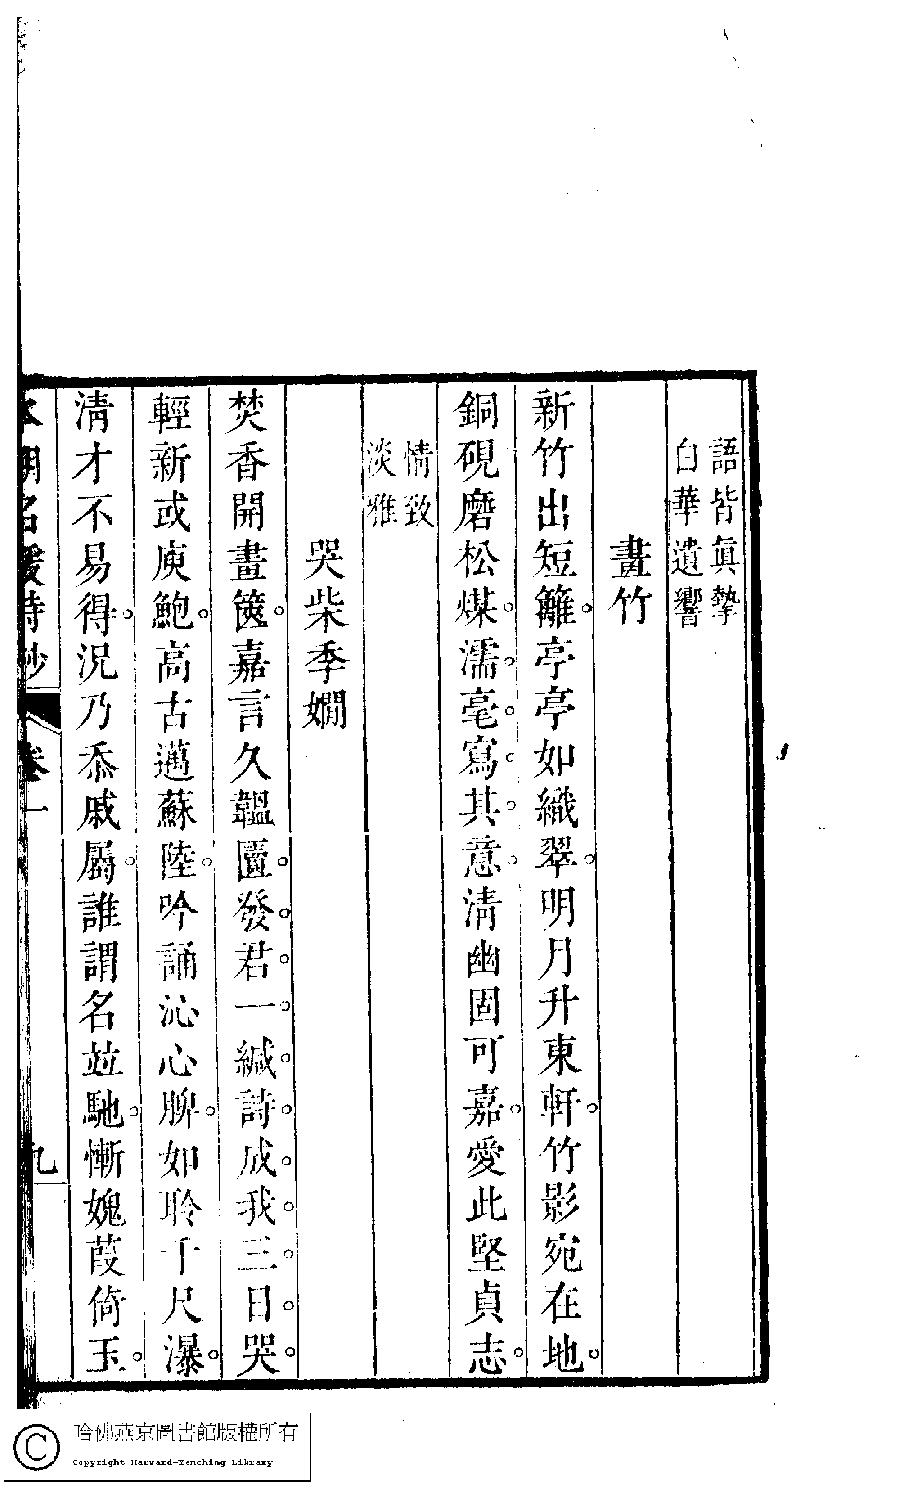 語皆真摯
白華遺響
畫竹
新竹出短籬。亭亭如織翠。明月升東軒。竹影宛在地。
銅硯磨松煤。濡。毫。寫。其。意。清幽固可嘉。愛此堅貞志。
情致
淡雅
哭柴季嫺
焚香開畫篋。嘉言久韞匵。發。君。一。緘。詩。成。我。三。日。哭。
輕新或庾鮑。高古邁蘇陸。吟誦沁心脾。如聆千尺瀑。
清才不易得。況乃忝戚屬。誰謂名並馳。慚媿葭倚玉。
本朝名媛詩鈔 卷一 九
哈佛燕京圖書館版權所有
Copyright Harvard-Yenching Library